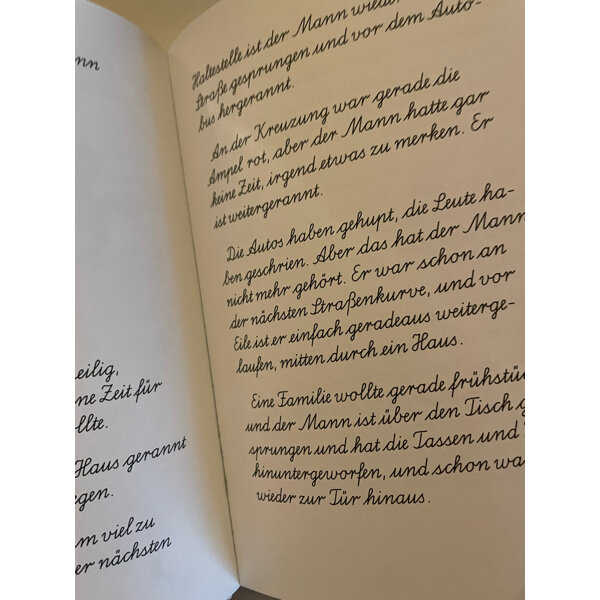 nn
eilig,
ne Zeit für
llte.
Haus gerannt
egen.
m viel zu
er nächsten
Haltestelle ist der Mann wieder
Straße gesprungen und vor dem Auto-
bus hergerannt.
An der Kreuzung war gerade die
Ampel rot, aber der Mann hatte gar
keine Zeit, irgend etwas zu merken. Er
ist weitergerannt.
Die Autos haben gehupt, die Leute ha-
ben geschrien. Aber das hat der Mann
nicht mehr gehört. Er war schon an
der nächsten Straßenkurve, und vor
Eile ist er einfach geradeaus weiterge-
laufen, mitten durch ein Haus.
Eine Familie wollte gerade frühstüc
und der Mann ist über den Tisch g
sprungen und hat die Tassen und
hinuntergeworfen, und schon wa
wieder zur Tür hinaus.